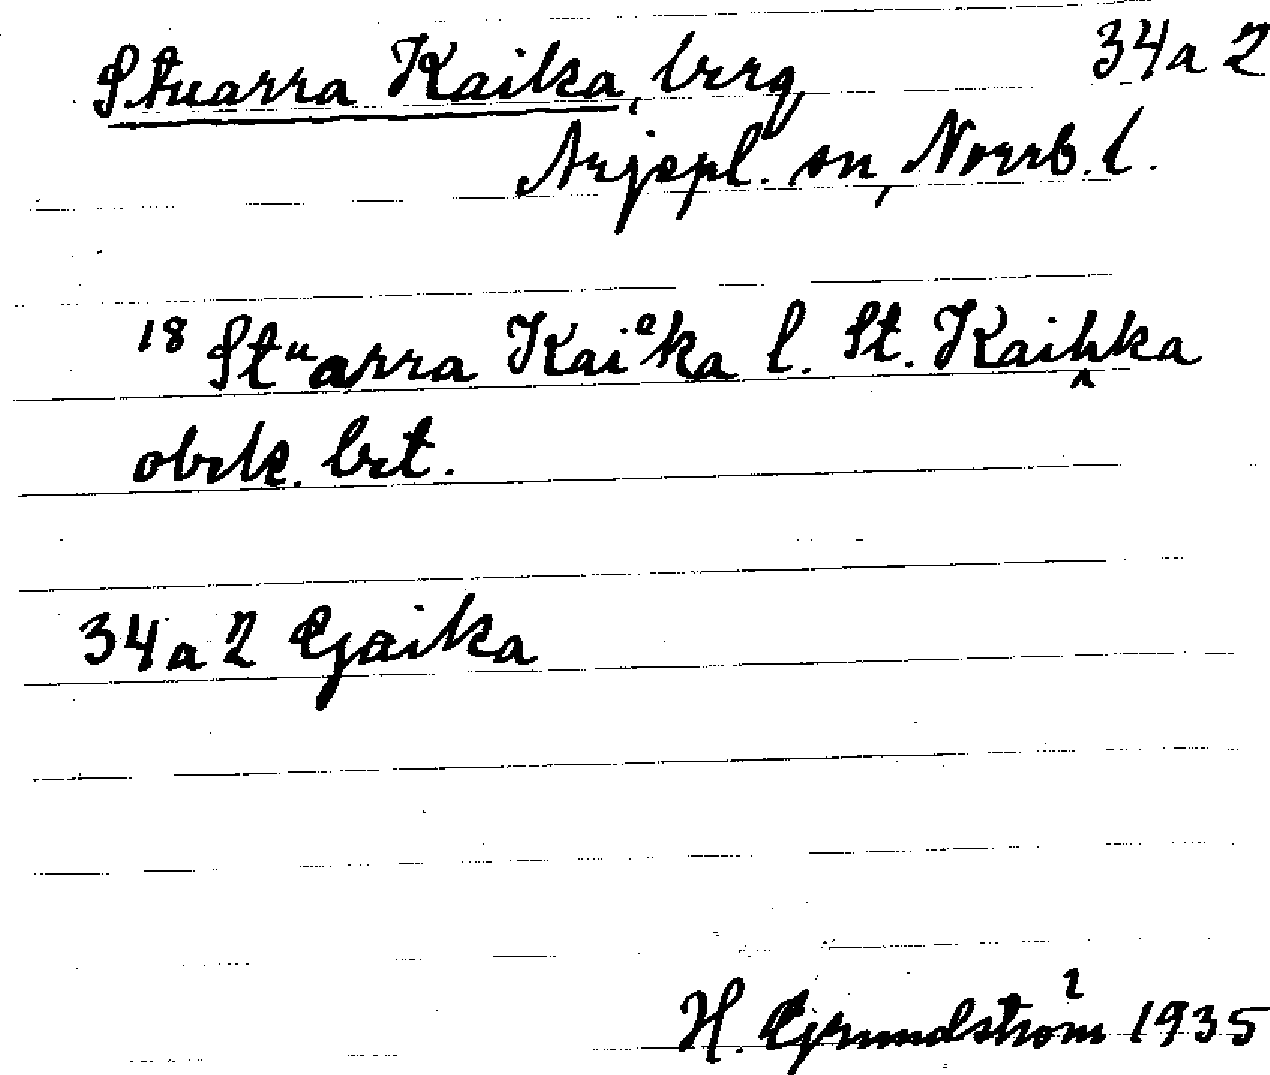 Stuarra Kaika, berg, 34a2
Arjepl. sn, Norrb. l.
18 Stᵘarra Kaiᵊka l. St. Kaihka
obek. bet.
34a2 Gjaika
H. Grundström 1935